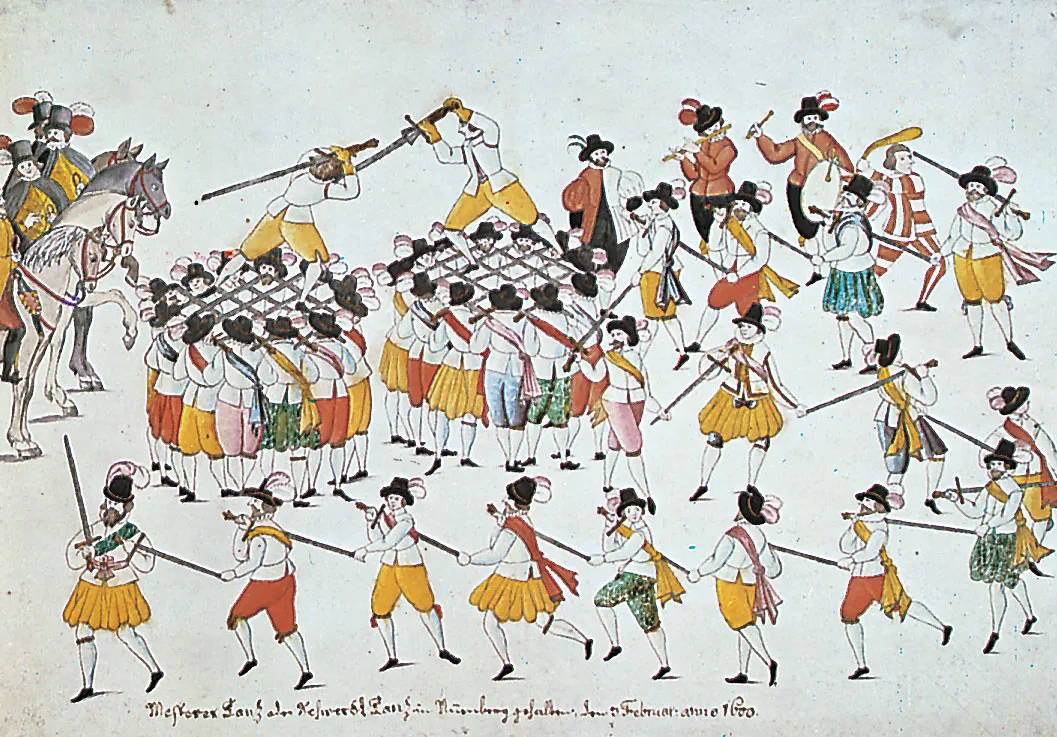 Messerer Tantz oder Schwerdt Tantz in Nürnberg gehalten, den 3 Februar: anno 1600.